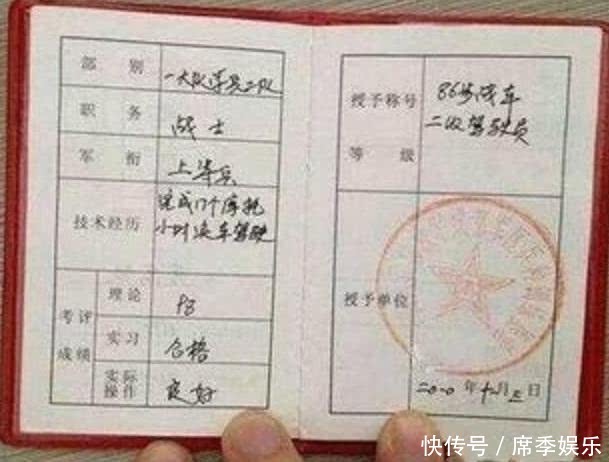 部别
一大队学员二队
职务
战士
军衔
上等兵
技术经历
完成17个摩托
小时汽车驾驶
考评成绩
理论
98
实习
合格
实际操作
良好
授予称号
等级
86步战车
二级驾驶员
授予单位
2010年十二月五日
快传号/席季娱乐